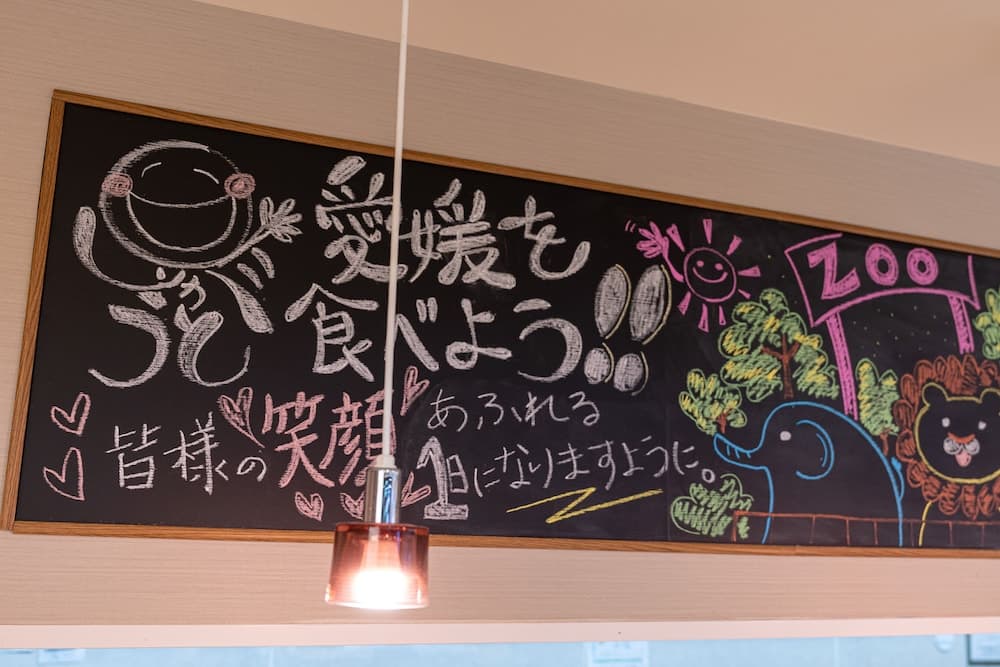 愛媛を
食べよう!!
皆様の笑顔あふれる
1日になりますように。
ZOO